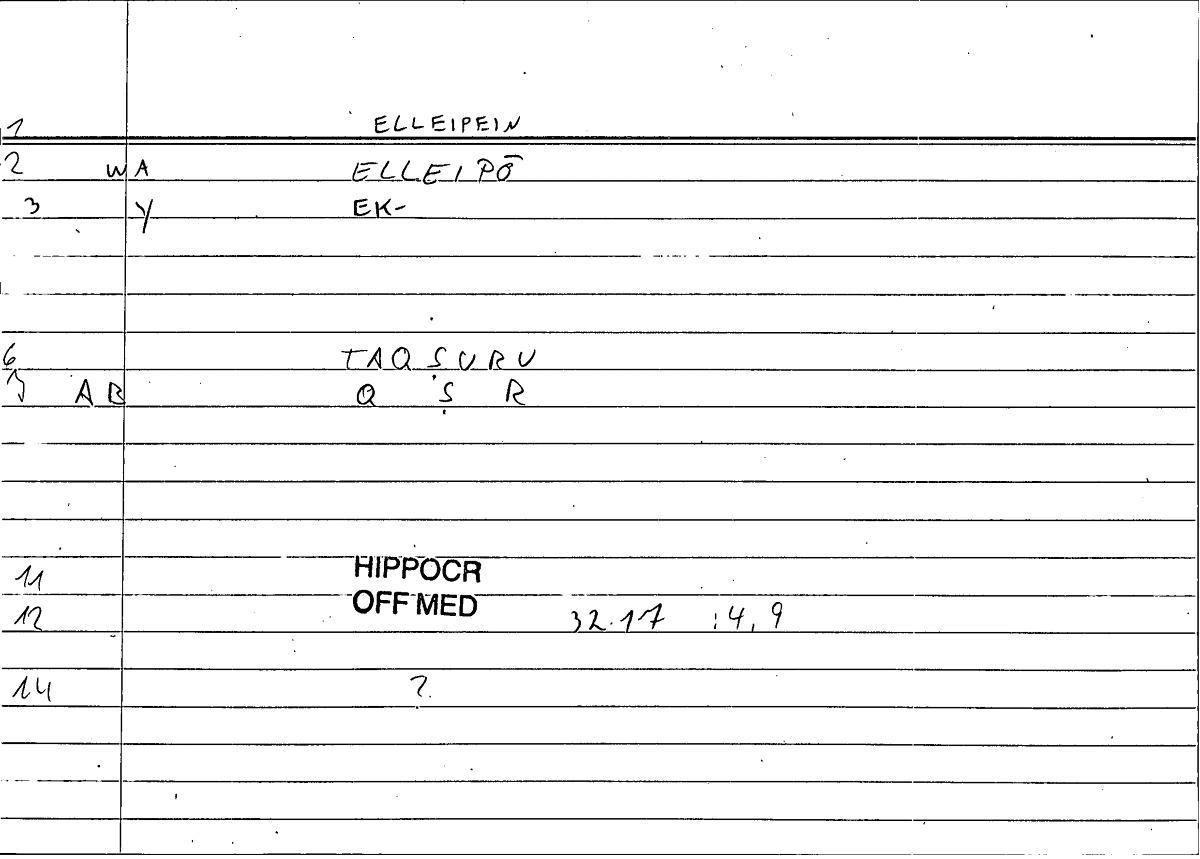 1 ELLEIPEIN
2 WA ELLEIPŌ
3 Y EK-
6 TAQṢURU
7 AB Q Ṣ R
11 HIPPOCR
12 OFF MED 32.17 :4,9
14 ?